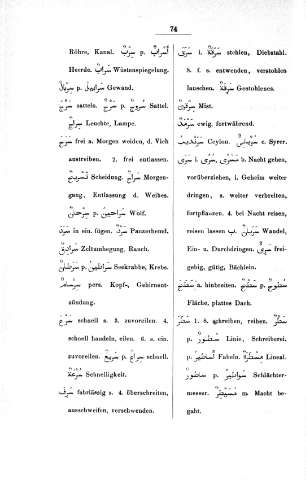 74
Röhre, Kanal. سَرَبٌ p. أَسْرَابٌ
Heerde. سَرَابٌ Wüstenspiegelung.
سِرْبَالٌ p. سَرَابِيلُ Gewand.
سَرْجٌ satteln. سَرْجٌ p. سُرُوجٌ Sattel.
سِرَاجٌ Leuchte, Lampe.
سَرَحَ frei a. Morgen weiden, d. Vieh
austreiben. 2. frei entlassen.
تَسْرِيحٌ Scheidung. سَرَاحٌ Morgen-
gang, Entlassung d. Weibes.
سِرْحَانٌ p. سَرَاحِينُ Wolf.
سَرَدَ in ein. fügen. سَرْدٌ Panzerhemd.
سُرَادِقٌ Zeltumhegung, Rauch.
سَرَطَانٌ p. سَرَاطِينُ Seekrabbe, Krebs.
سِرْسَامٌ pers. Kopf-, Gehirnent-
zündung.
سَرُعَ schnell s. 3. zuvoreilen. 4.
schnell handeln, eilen. 6. s. ein.
zuvoreilen. سَرِيعٌ p. سِرَاعٌ schnell.
سُرْعَةٌ Schnelligkeit.
سَرِفَ fahrlässig s. 4. überschreiten,
ausschweifen, verschwenden.
سَرَقَ i. سَرِقَةٌ stehlen, Diebstahl.
8. f. s. entwenden, verstohlen
lauschen سَرِقَةٌ Gestohlenes.
سِرْقِينٌ Mist.
سَرْمَدٌ ewig, fortwährend.
سَرَنْدِيبُ Ceylon. سُرْيَانِيٌّ e. Syrer.
سَرَى i. سُرًى b. Nacht gehen,
vorüberziehen, i. Geheim weiter
dringen, s. weiter verbreiten,
fortpflanzen. 4. bei Nacht reisen,
reisen lassen ب. سَرَيَانٌ Wandel,
Ein- u. Durchdringen. سَرِيٌّ frei-
gebig, gütig, Bächlein.
سَطَحَ a. hinbreiten. سَطْحٌ p. سُطُوحٌ
Fläche, plattes Dach.
سَطَرَ 1. 8. schreiben, reihen. سَطْرٌ
p. سُطُورٌ Linie, Schreiberei.
p. أَسَاطِيرُ Fabeln. مِسْطَرَةٌ Lineal.
سَاطُورٌ p. سَوَاطِيرُ Schlächter-
messer. مُسَيْطِرٌ m. Macht be-
gabt.